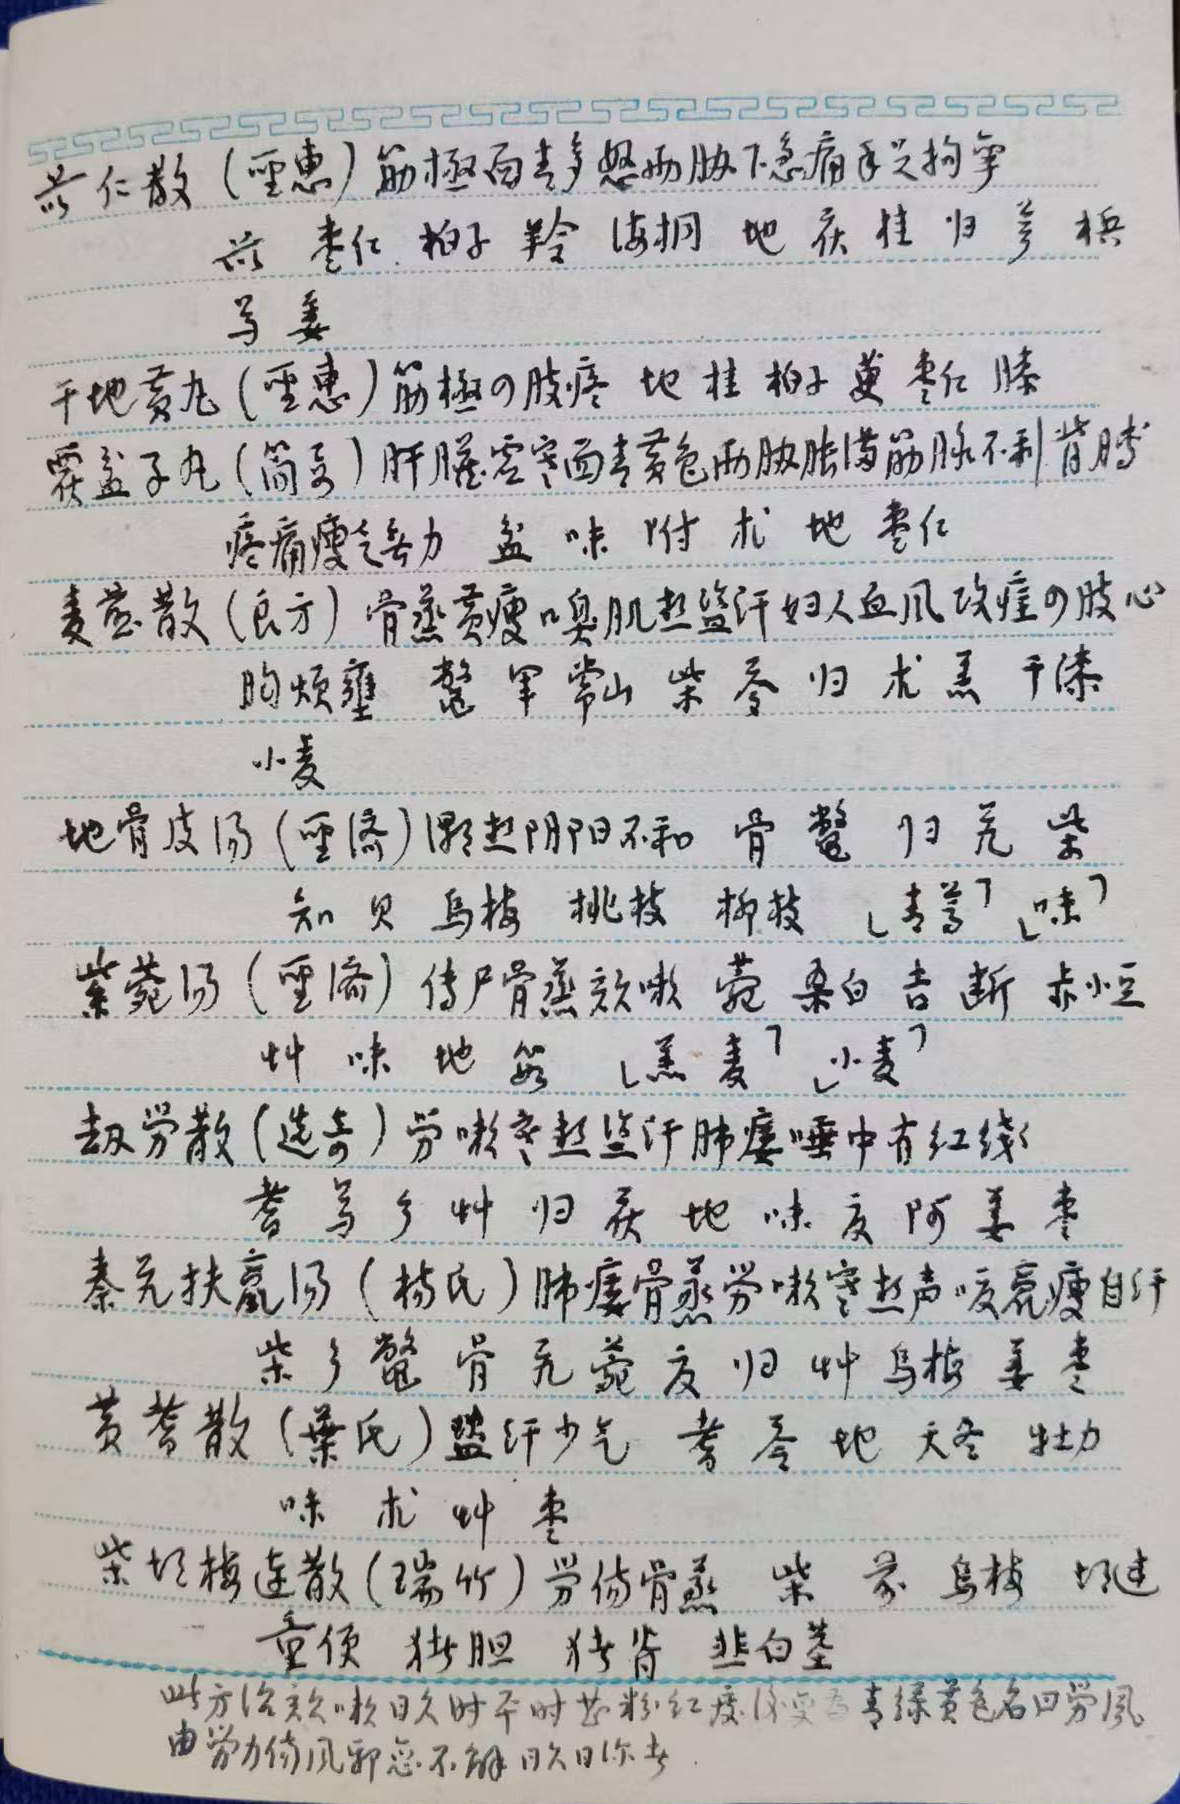 苡仁散（聖惠）筋極面青多怒两胁下急痛手足拘挛
苡 枣仁 柏子 羚 海桐 地 茯 桂 归 芎 梹
芍 姜
干地黄丸（聖惠）筋極の肢疼 地 桂 柏子 萆 枣仁 膝
覆盆子丸（简易）肝胆虚寒面青黄色两胁胀满筋脉不利背膊
疼痛瘦乏無力 盆 味 附 朮 地 枣仁
麦煎散（良方）骨蒸黄瘦嗅肌热盗汗妇人血风攻症の肢心
胸烦壅 鳖 军 常山 柴 苓 归 朮 羔 干漆
小麦
地骨皮汤（聖济）潮热阴阳不和 骨 鳖 归 艽 柴
知 贝 乌梅 桃枝 柳枝 ㄴ青蒿ㄱ ㄴ味ㄱ
紫菀汤（聖济）传尸骨蒸欬嗽 菀 桑白 吉 断 赤小豆
艸 味 地 茹 ㄴ羔 麦ㄱ ㄴ小麦ㄱ
劫劳散（选奇）劳嗽寒热盗汗肺痿唾中有红线
耆 芍 参 艸 归 茯 地 味 夏 阿 姜 枣
秦艽扶羸汤（杨氏）肺痿骨蒸劳嗽寒热声嗄羸瘦自汗
柴 参 鳖 骨 艽 菀 夏 归 艸 乌梅 姜 枣
黄耆散（葉氏）盗汗少气 耆 苓 地 天冬 牡力
味 朮 艸 枣
柴胡梅连散（瑞竹）劳伤骨蒸 柴 前 乌梅 胡连
童便 猪胆 猪脊 韭白茎
此方治欬嗽日久时平时 粉红痰后变為青绿黄色名曰劳風
由劳力伤风邪 不解日久